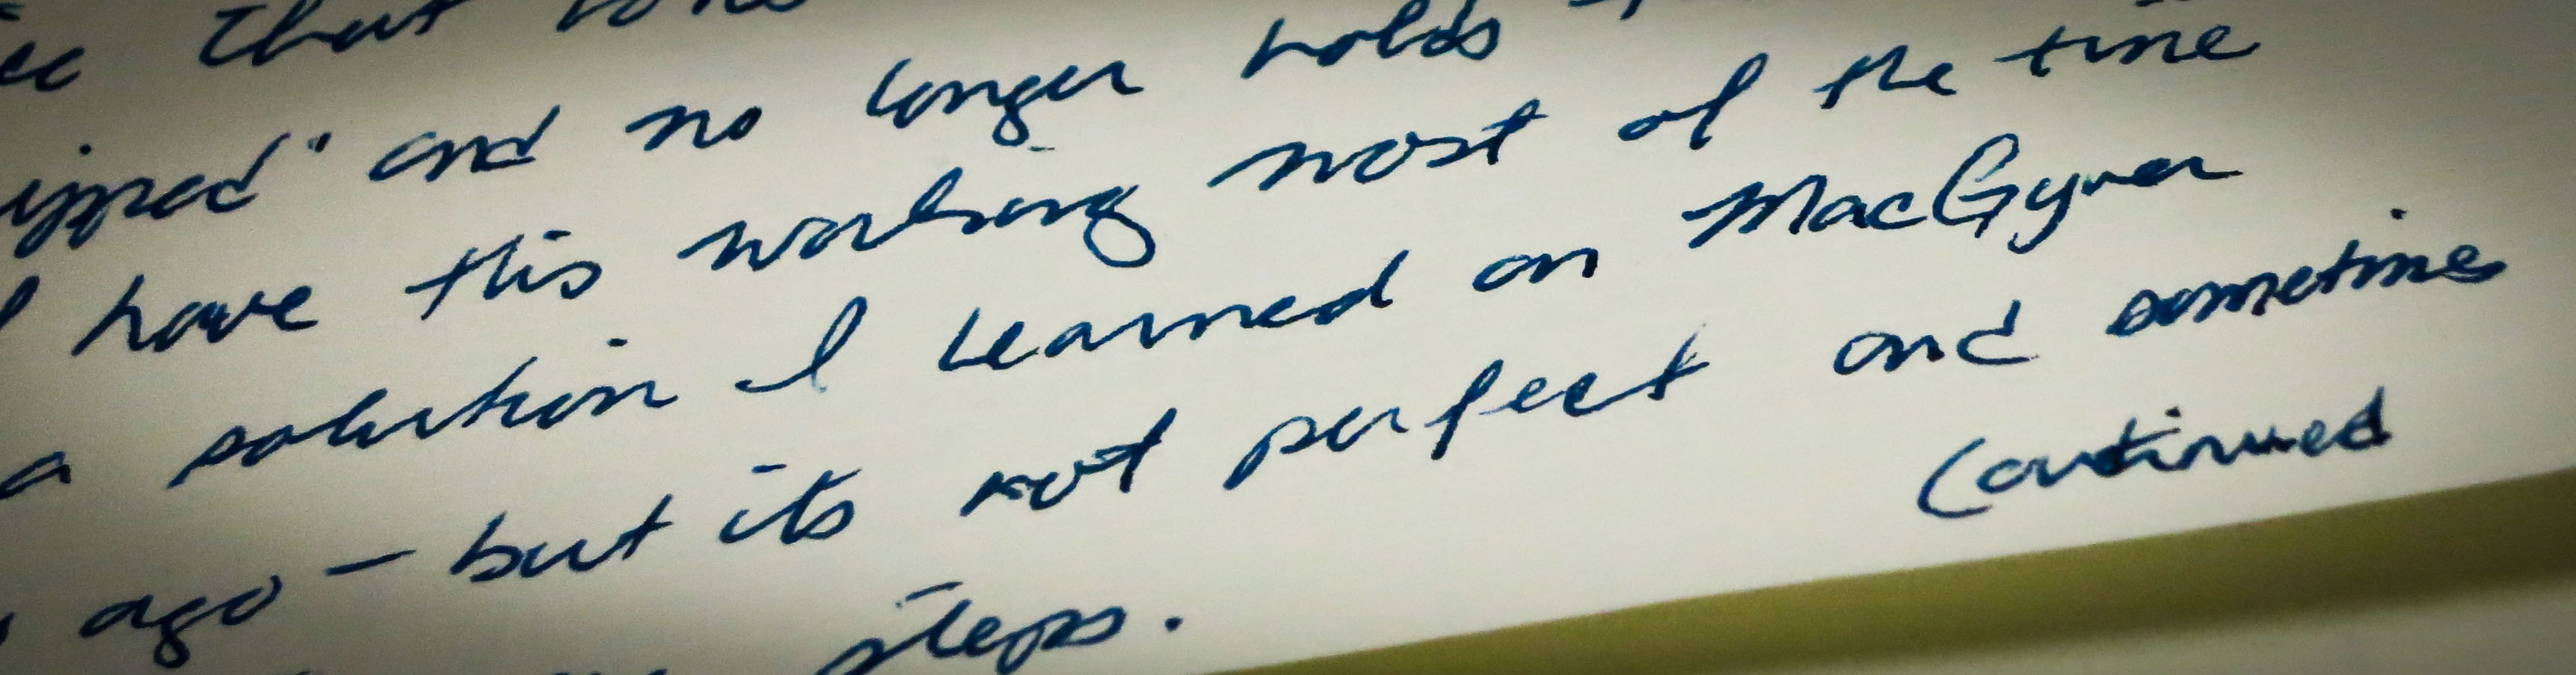 that
and no longer holds
I have this working most of the time
a solution I learned on MacGyver
ago – but its not perfect and sometimes
steps. (continued